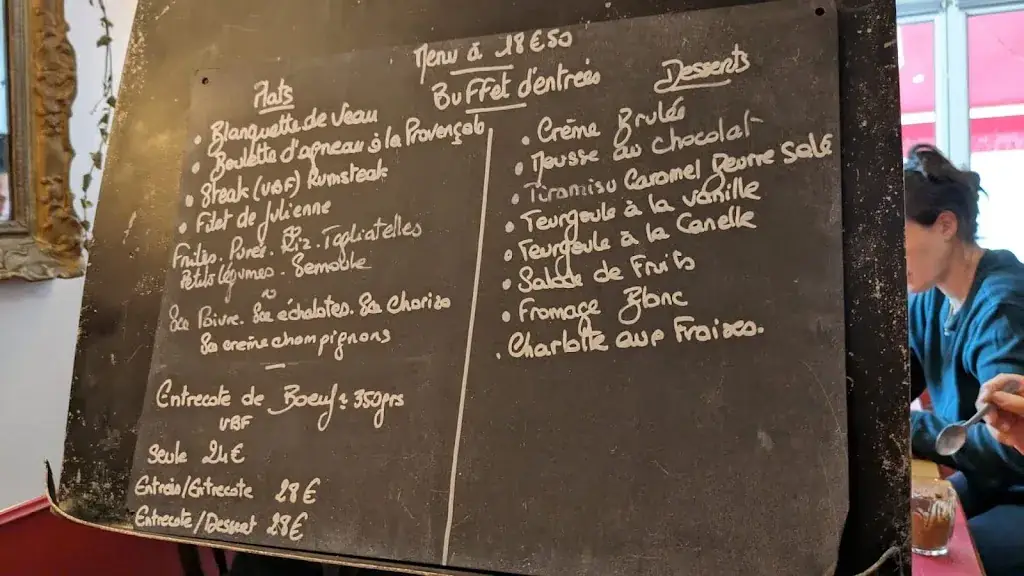 Menu à 18€50
Buffet d'entrées
Plats
• Blanquette de Veau
• Boulette d'agneau à la Provençale
• Steak (VBF) Rumsteak
• Filet de Julienne
Frites. Purée. Riz. Tagliatelles
Petits légumes. Semoule
Sce Poivre. Sce échalotes. Sce Chorizo
Sce crème champignons
Entrecote de Boeuf ≈ 350grs
VBF
Seule 24€
Entrée/Entrecote 28€
Entrecote/Dessert 28€
Desserts
• Crème Brulée
• Mousse au chocolat
• Tiramisu Caramel Beurre Salé
• Teurgoule à la vanille
• Teurgoule à la Canelle
• Salade de Fruits
• Fromage Blanc
. Charlotte aux Fraises.